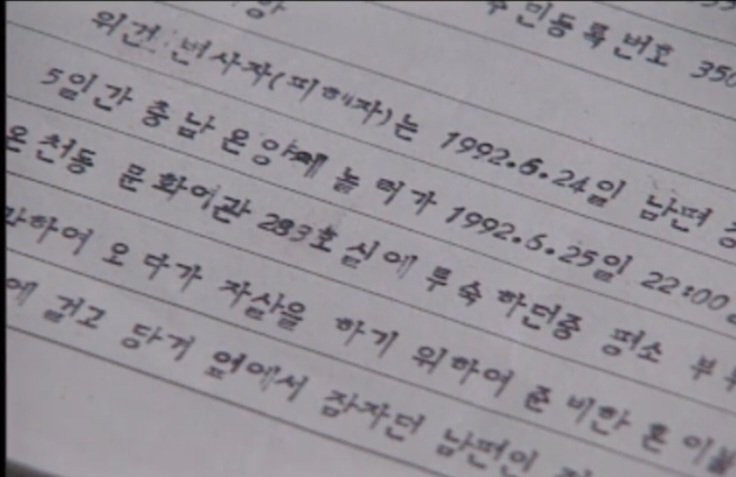 항 주민등록번호 350
위건 변사자(피해자)는 1992.6.24일 남편
5일간 충남 온양에 놀러가 1992.6.25일 22:00
온천동 문화여관 283호실에 투숙하던중 평소 부부
과하여 오다가 자살을 하기 위하여 준비한 혼이불
에 걸고 당겨 옆에서 잠자던 남편인